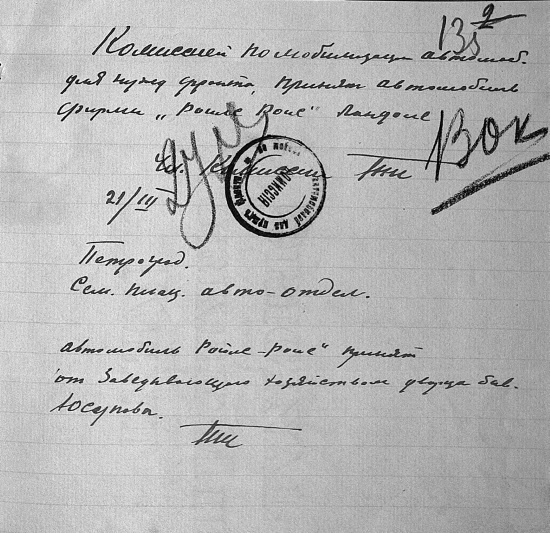 135
Комиссией по мобилизации автомоб.
для нужд фронта, принят автомобиль
фирмы „Ройльс Ройс" Ландоле
Вок
Комиссии
КОМИССІЯ
21/III
Петроград.
Сем. плац. авто-отдел.
автомобиль Ройлс-Ройс" принят
от Заведывающего хозяйством дворца быв.
Юсупова.